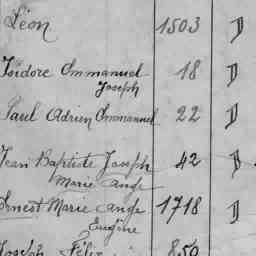 Léon 1503 D
Isidore Emmanuel 18 D
Joseph
Paul Adrien Emmanuel 22 D
Jean Baptiste Joseph 42 D
Marie Ange
Ernest Marie Ange 1718 D
Eugène
Joseph Félix 850